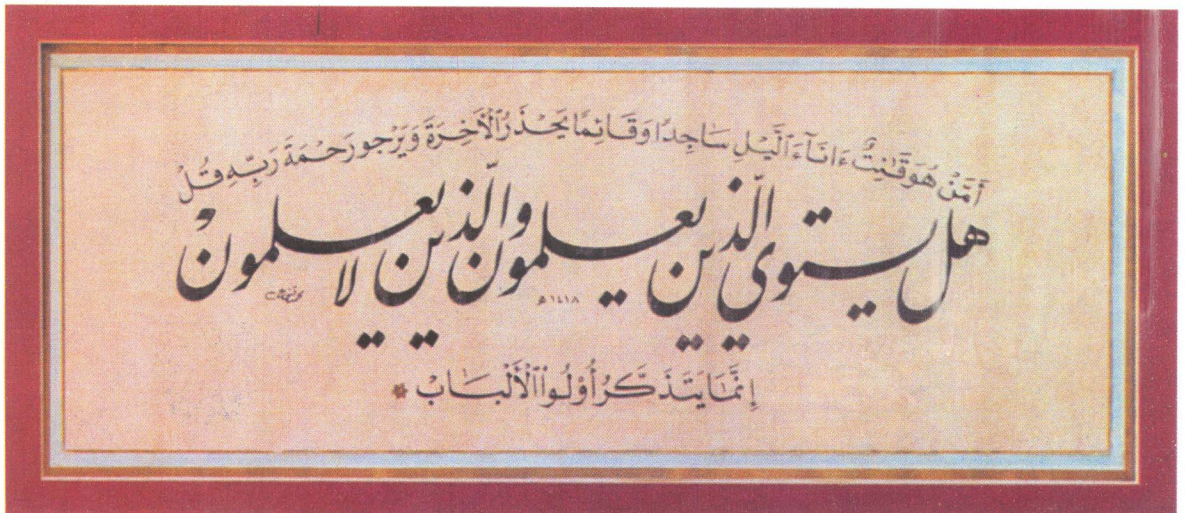 أَمَّنْ هُوَ قَٰنِتٌ ءَانَآءَ ٱلَّيْلِ سَاجِدًا وَقَآئِمًا يَحْذَرُ ٱلْأَخِرَةَ وَيَرْجُو رَحْمَةَ رَبِّهِ قُلْ
هل يستوي الّذين يعلمون والّذين لا يعلمونْ
١٤١٨ هـ
إِنَّمَا يَتَذَكَّرُ أُوْلُواْ ٱلْأَلْبَٰبْ